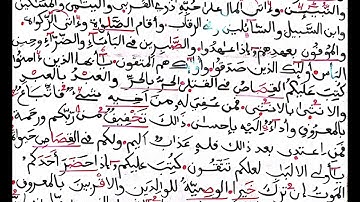 والنبيـين وءاتى المال على حبه ذوى القربى واليتمى والمسكين
وابن السبيل والسائلين وفى الرقاب وأقام الصلوة وءاتى الزكوة
والموفون بعهدهم إذا عهدوا والصبرين فى البأساء والضراء وحين
البأس أولئك الذين صدقوا وأولئك هم المتقون يأيها الذين ءامنوا
كتب عليكم القصاص فى القتلى الحر بالحر والعبد بالعبد
والانثى بالانثى فمن عفى له من أخيه شىء فاتباع
بالمعروف وأداء إليه بإحسن ذلك تخفيف من ربكم ورحمة
فمن اعتدى بعد ذلك فله عذاب اليم ولكم فى القصاص حيوة
يأولى الالبب لعلكم تتقون كتب عليكم إذا حضر أحدكم
الموت إن ترك خيرا الوصية للوالدين والاقربين بالمعروف